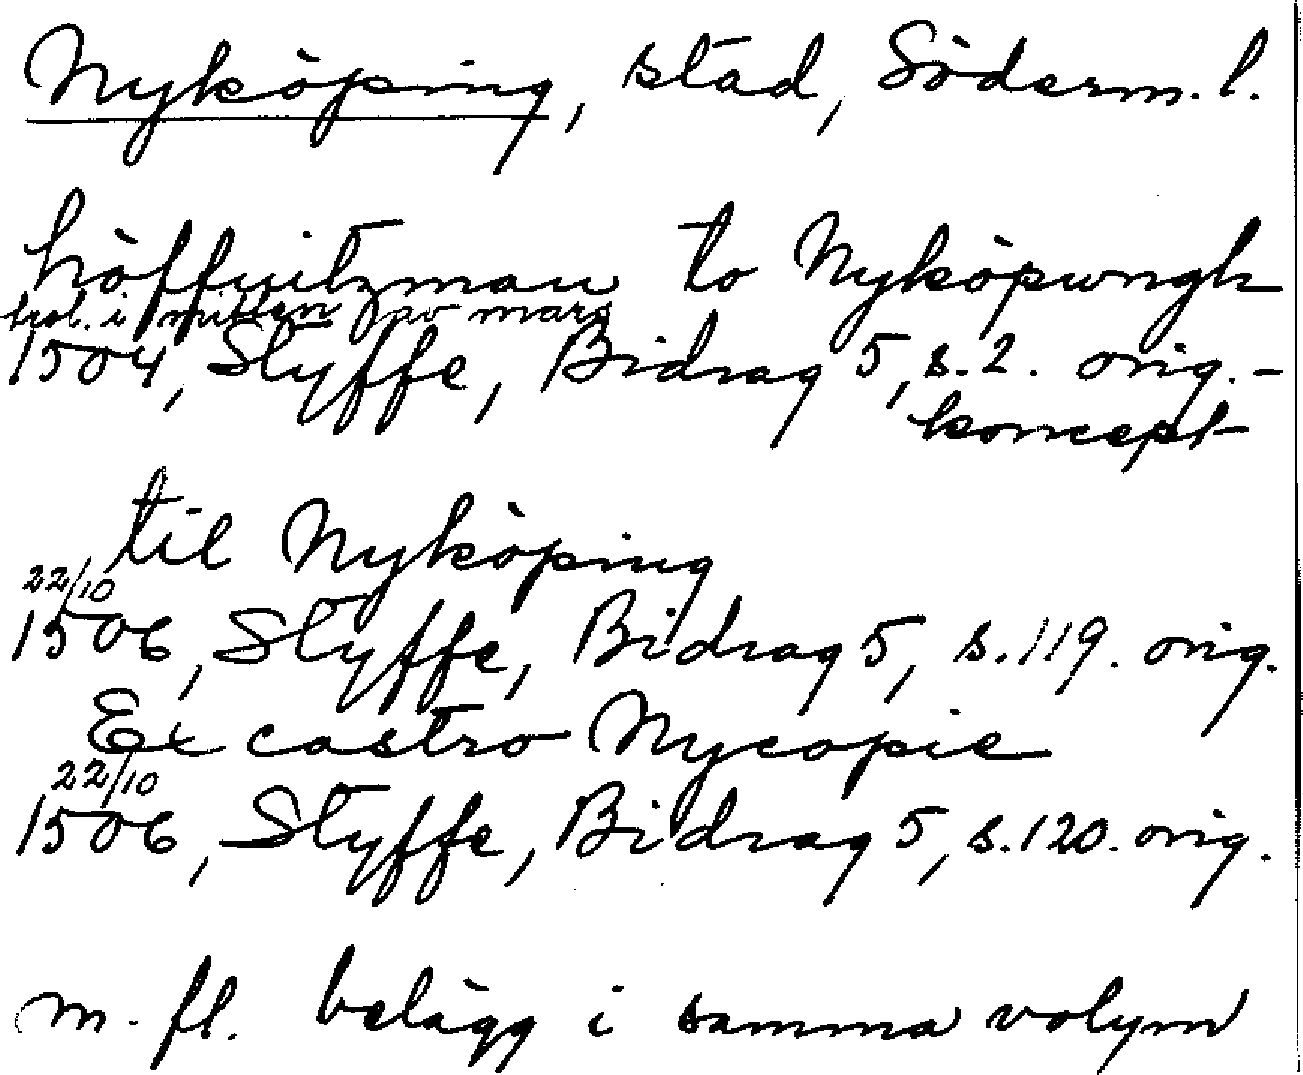 Nyköping, stad, Söderm. l.
höffuitzman to Nyköpwngh
i mitten av mars
1504, Styffe, Bidrag 5, s. 2. orig.-
koncept
til Nyköping
22/10
1506, Styffe, Bidrag 5, s. 119. orig.
Ex castro Nycopie
22/10
1506, Styffe, Bidrag 5, s. 120. orig.
m. fl. belägg i samma volym